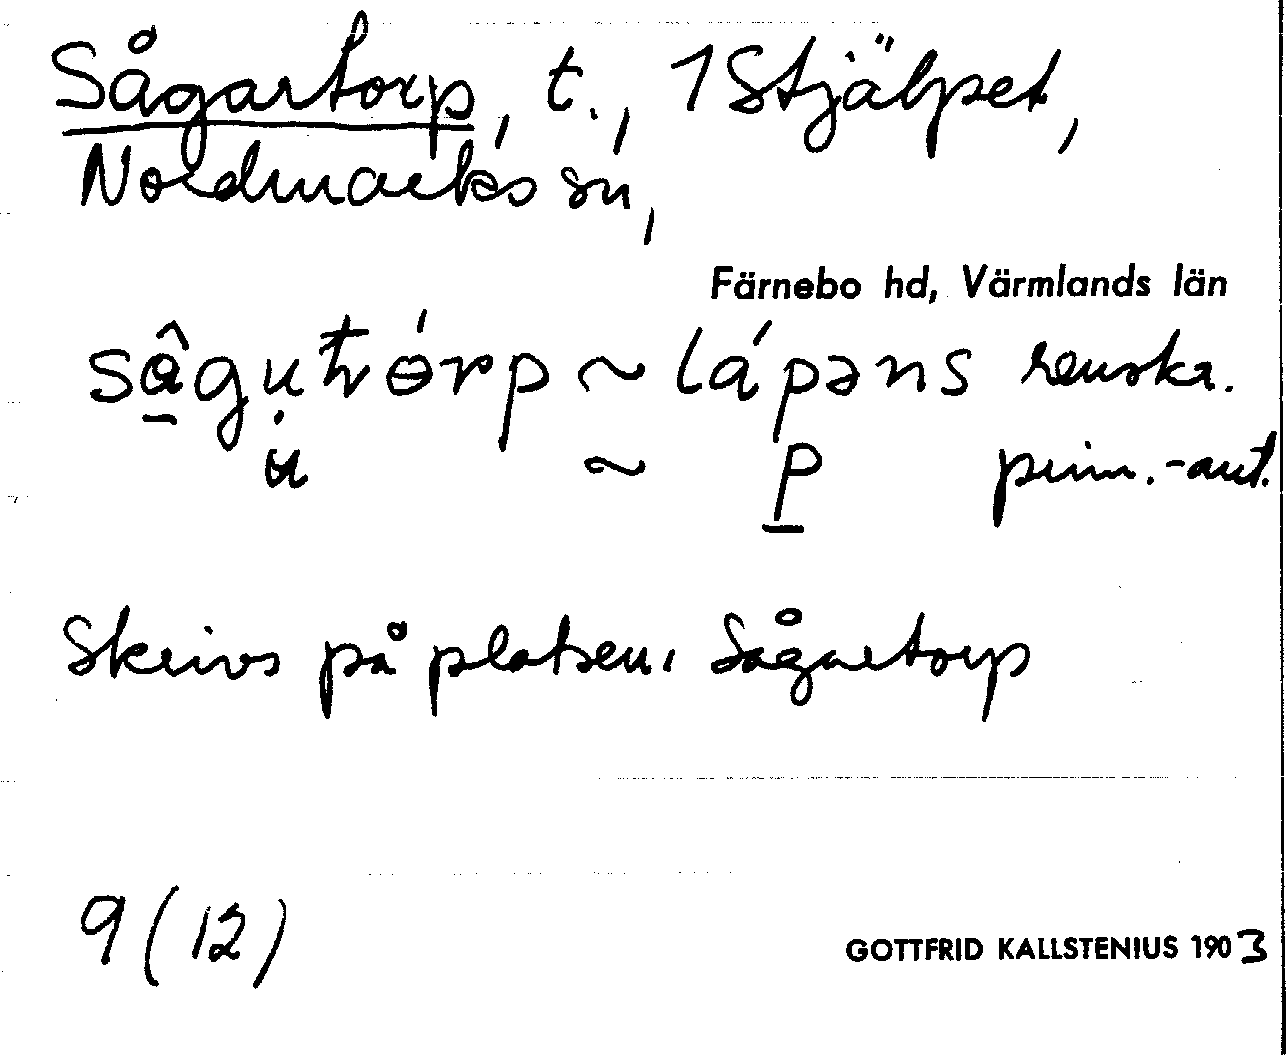 Sågartorp, t., 1 Stjälpet,
Nordmarks sn,
Färnebo hd, Värmlands län
sågutórp ~ lápəns renskr.
~ p prim.-ant.
Skrivs på platsen: Sågartorp
9 (12)
GOTTFRID KALLSTENIUS 1903